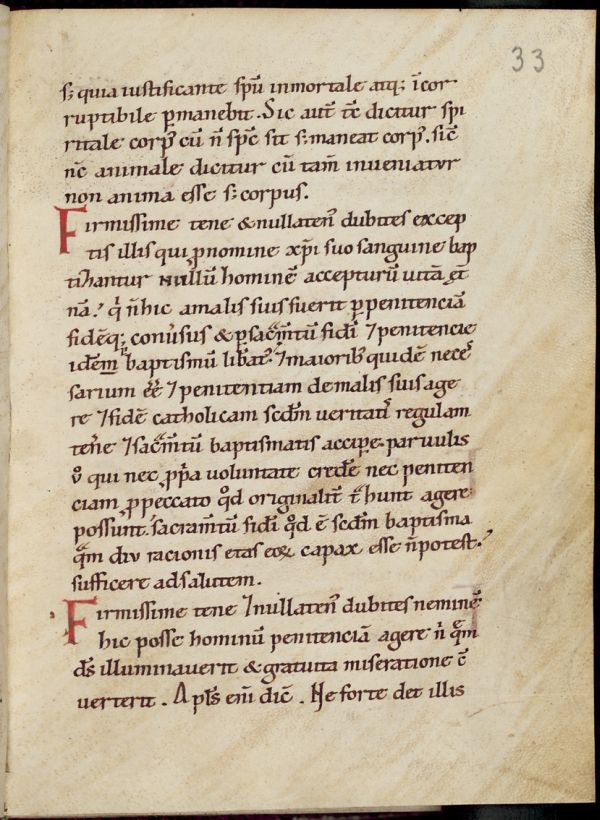 33
s; quia iustificante spū inmortale atq; īcor
ruptibile ꝑmanebit. Sic aut̄ tc̄ dicitur spi
ritale corp᷒ cū n̄ sp̄c sit s; maneat corp᷒. sic̄
nc̄ animale dicitur cū tam̄ inueniatur
non anima esse s; corpus.
Firmissime tene & nullaten᷒ dubites excep
tis illis qui ꝓ nomine xp̄i suo sanguine bap
tizantur nullū hominē accepturū uitā et
nā. q̇ n̄ hic a malis suis fuerit ꝑ penitenciā
fidēq; conuersus & ꝑ sacm̄tū fidi ⁊ penitencie
idē baptismū libat᷒. ⁊ maiorib᷒ quidē nece
sarium eē ⁊ penitentiam de malis suis age
re ⁊ fidē catholicam scdm̄ ueritatis regulam
tene ⁊ sacm̄tū baptismatis accipe. paruulis
u̇ qui nec ꝓpa uoluntate credere nec peniten
ciam ꝓ peccato qd̄ originalit̄ t̄hunt agere
possunt. sacram̄tū fidi qd̄ ē scdm̄ baptisma
qm̄ diu racionis etas eoꝝ capax esse n̄ potest.
sufficere ad salutem.
Firmissime tene ⁊ nullaten᷒ dubites neminē
hic posse hominū penitenciā agere n̄ qm̄
ds̄ illuminauerit & gratuita miseratione c̄
uerterit. Apl̄s eni dic̄. Ne forte det illis